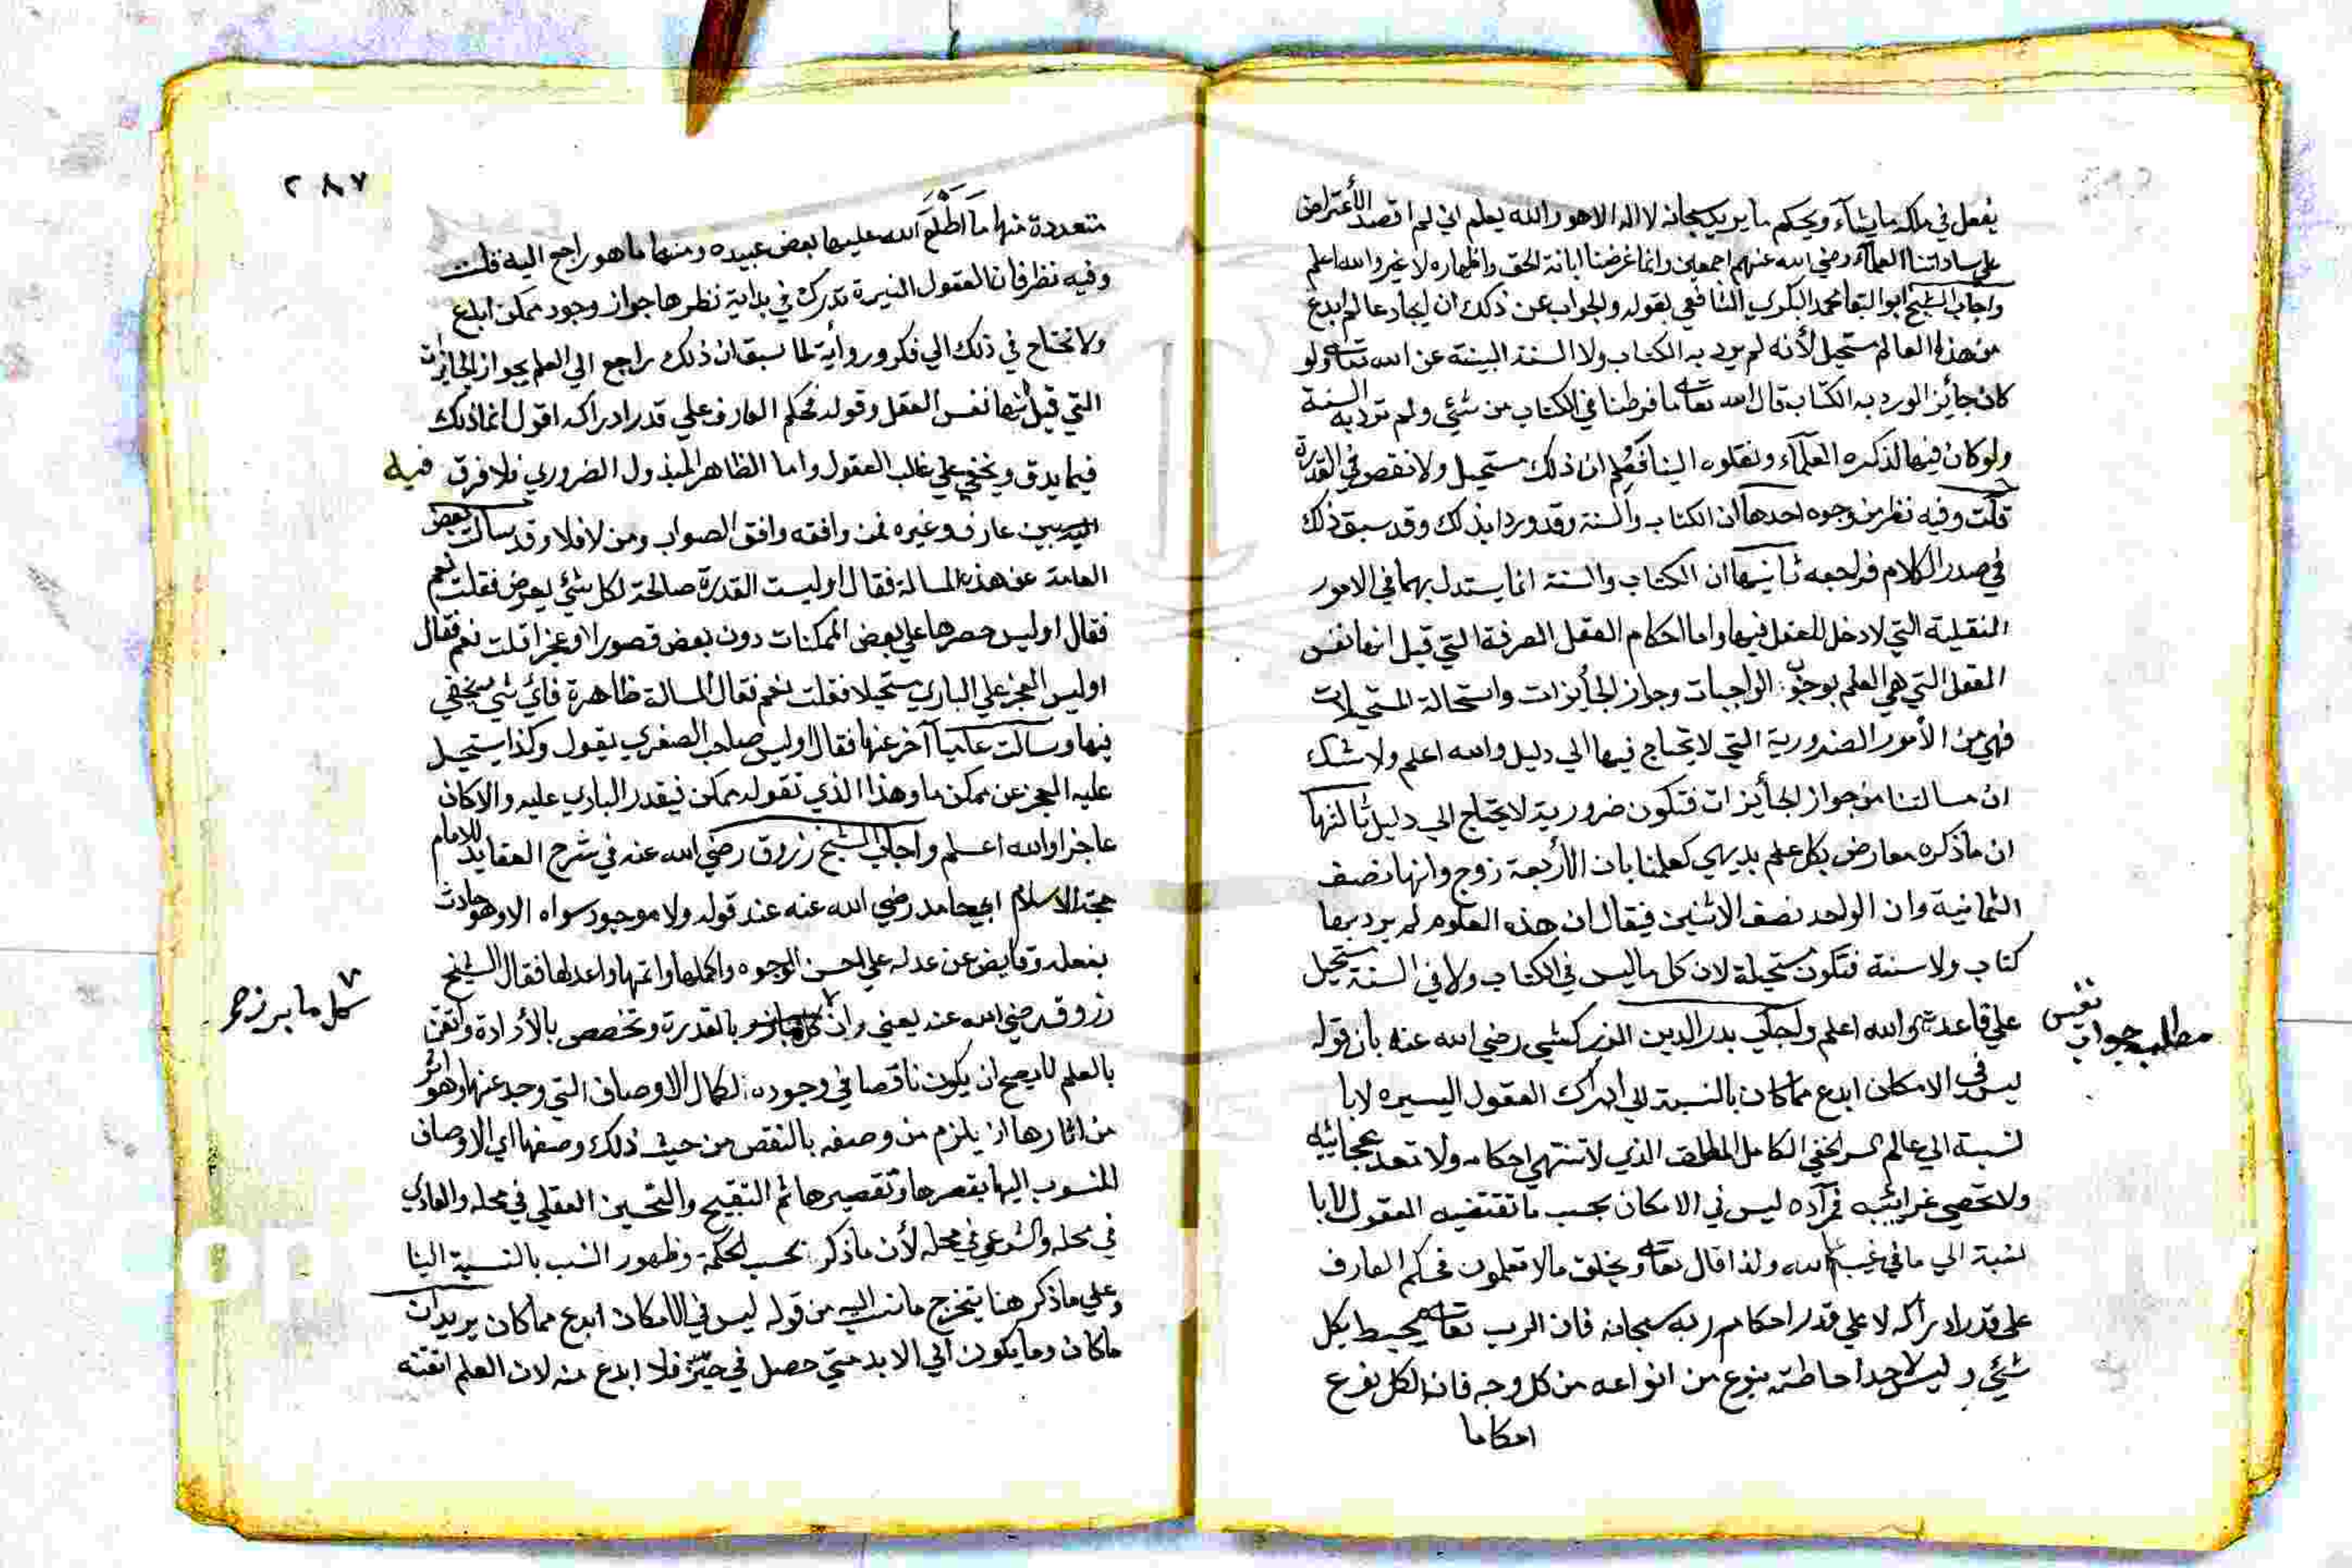 يفعل في ملكه ما يشآء ويحكم ما يريد سبحانه لا اله الا هو والله يعلم اني لم اقصد الأعتراض
علي ساداتنا العلمآء رضي الله عنهم اجمعين وانما غرضنا ابانة الحق واظهاره لا غير والله اعلم
واجاب الشيخ ابو البقا محمد البكري الشافعي بقوله والجواب عن ذلك ان ايجاد عالم ابدع
من هذا العالم مستحيل لأنه لم يرد به الكتاب ولا السنة البينة عن الله تعالى ولو
كان جائز الورد به الكتاب قال الله تعالى ما فرطنا في الكتاب من شئي ولم ترد به السنة
ولو كان فيها لذكره العلمآء ونقلوه الينا فعلم ان ذلك مستحيل ولا نقص في القدرة
قلت وفيه نظر من وجوه احدها ان الكتاب والسنة قد وردا بذلك وقد سبق ذلك
في صدر الكلام فراجعه ثانيها ان الكتاب والسنة انما يستدل بهما في الامور
النقلية التي لا دخل للعقل فيها واما احكام العقل الصرفة التي قيل انها نفس
العقل التي هي العلم بوجوب الواجبات وجواز الجأيزات واستحالة المستحيلات
فهي من الأمور الضرورية التي لا تحتاج فيها الي دليل والله اعلم ولا شك
ان مسالتنا من جواز الجأيزات فتكون ضرورية لا يحتاج الي دليل ثالثها
ان ما ذكره معارض بكل علم بديهي كعلمنا بان الأربعة زوج وانها نصف
الثمانية وان الواحد نصف الاثنين فيقال ان هذه العلوم لم يرد بها
كتاب ولا سنة فتكون مستحيلة لان كل ما ليس في الكتاب ولا في السنة مستحيل
علي قاعدته والله اعلم واجاب بدر الدين الزركشي رضي الله عنه بان قوله
ليس في الامكان ابدع مما كان بالنسبة الي ادراك العقول اليسيره لا با
لنسبة الي عالم السر الخفي الكامل المطلق الذي لا تنتهي احكامه ولا تعد عجائبه
ولا تحصي غرائبه فمراده ليس في الامكان بحسب ما تقتضيه العقول لا با
لنسبة الي ما في غيب الله ولذا قال تعالى ويخلق ما لا تعلمون فحكم العارف
علي قدر ادراكه لا علي قدر احكام ربه سبحانه فان الرب تعالى محيط بكل
شئي وليس لأحد احاطته بنوع من انواعه من كل وجه فان لكل نوع
احكاما
مطلب جواب نفيس
٢٨٧
متعددة منها ما اَطْلَعَ الله عليها بعض عبيده ومنها ما هو راجع اليه قلت
وفيه نظر فان العقول النيرة تدرك في بداية نظرها جواز وجود ممكن ابدع
ولا تحتاج في ذلك الي فكر ورواية لما سبق ان ذلك راجع الي العلم بجواز الجايزات
التي قيل انها نفس العقل وقوله فحكم العارف علي قدر ادراكه اقول انما ذلك
فيما يدق ويخفي علي غالب العقول واما الظاهر المبذول الضروري فلا فرق فيه
بين عارف وغيره فمن وافقه وافق الصواب ومن لا فلا وقد سألت بعض
العامة عن هذه المسالة فقال اوليست القدرة صالحة لكل شئي يعرض فقلت نعم
فقال اوليس حصرها علي بعض الممكنات دون بعض قصورا وعجزا قلت نعم فقال
اوليس العجز علي الباري مستحيلا فقلت نعم فقال المسالة ظاهرة فاي شئ يخفي
فيها وسالت عاميا آخر عنها فقال اوليس صاحب الصغري يقول وكذا يستحيل
عليه العجز عن ممكن ما وهذا الذي تقوله ممكن فيقدر الباري عليه والا كان
عاجزا والله اعلم واجاب الشيخ زروق رضي الله عنه في شرح العقايد للامام
حجة الاسلام ابي حامد رضي الله عنه عند قوله ولا موجود سواه الا وهو حادث
بفعله وفايض عن عدله علي احسن الوجوه واكملها واتمها واعدلها فقال الشيخ
زروق رضي الله عنه يعني وان بالقدرة وتخصص بالأرادة واتقن
بالعلم لا يصح ان يكون ناقصا في وجوده لكمال الاوصاف التي وجد عنها وهو اثر
من اثارها اذ يلزم من وصفه بالنقص من حيث ذلك وصفها اي الاوصاف
المنسوب اليها بقصرها وتقصيرها ثم التقبيح والتحسين العقلي في محله والعادي
في محله والشرعي في محله لأن ما ذكر بحسب الحكمة وظهور النسب بالنسبة الينا
وعلي ما ذكر هنا يتخرج ما نسب اليه من قوله ليس في الامكان ابدع مما كان يريد ان
ما كان وما يكون الي الابد متي حصل في حيّز فلا ابدع منه لان العلم اتقنه
كل ما برز